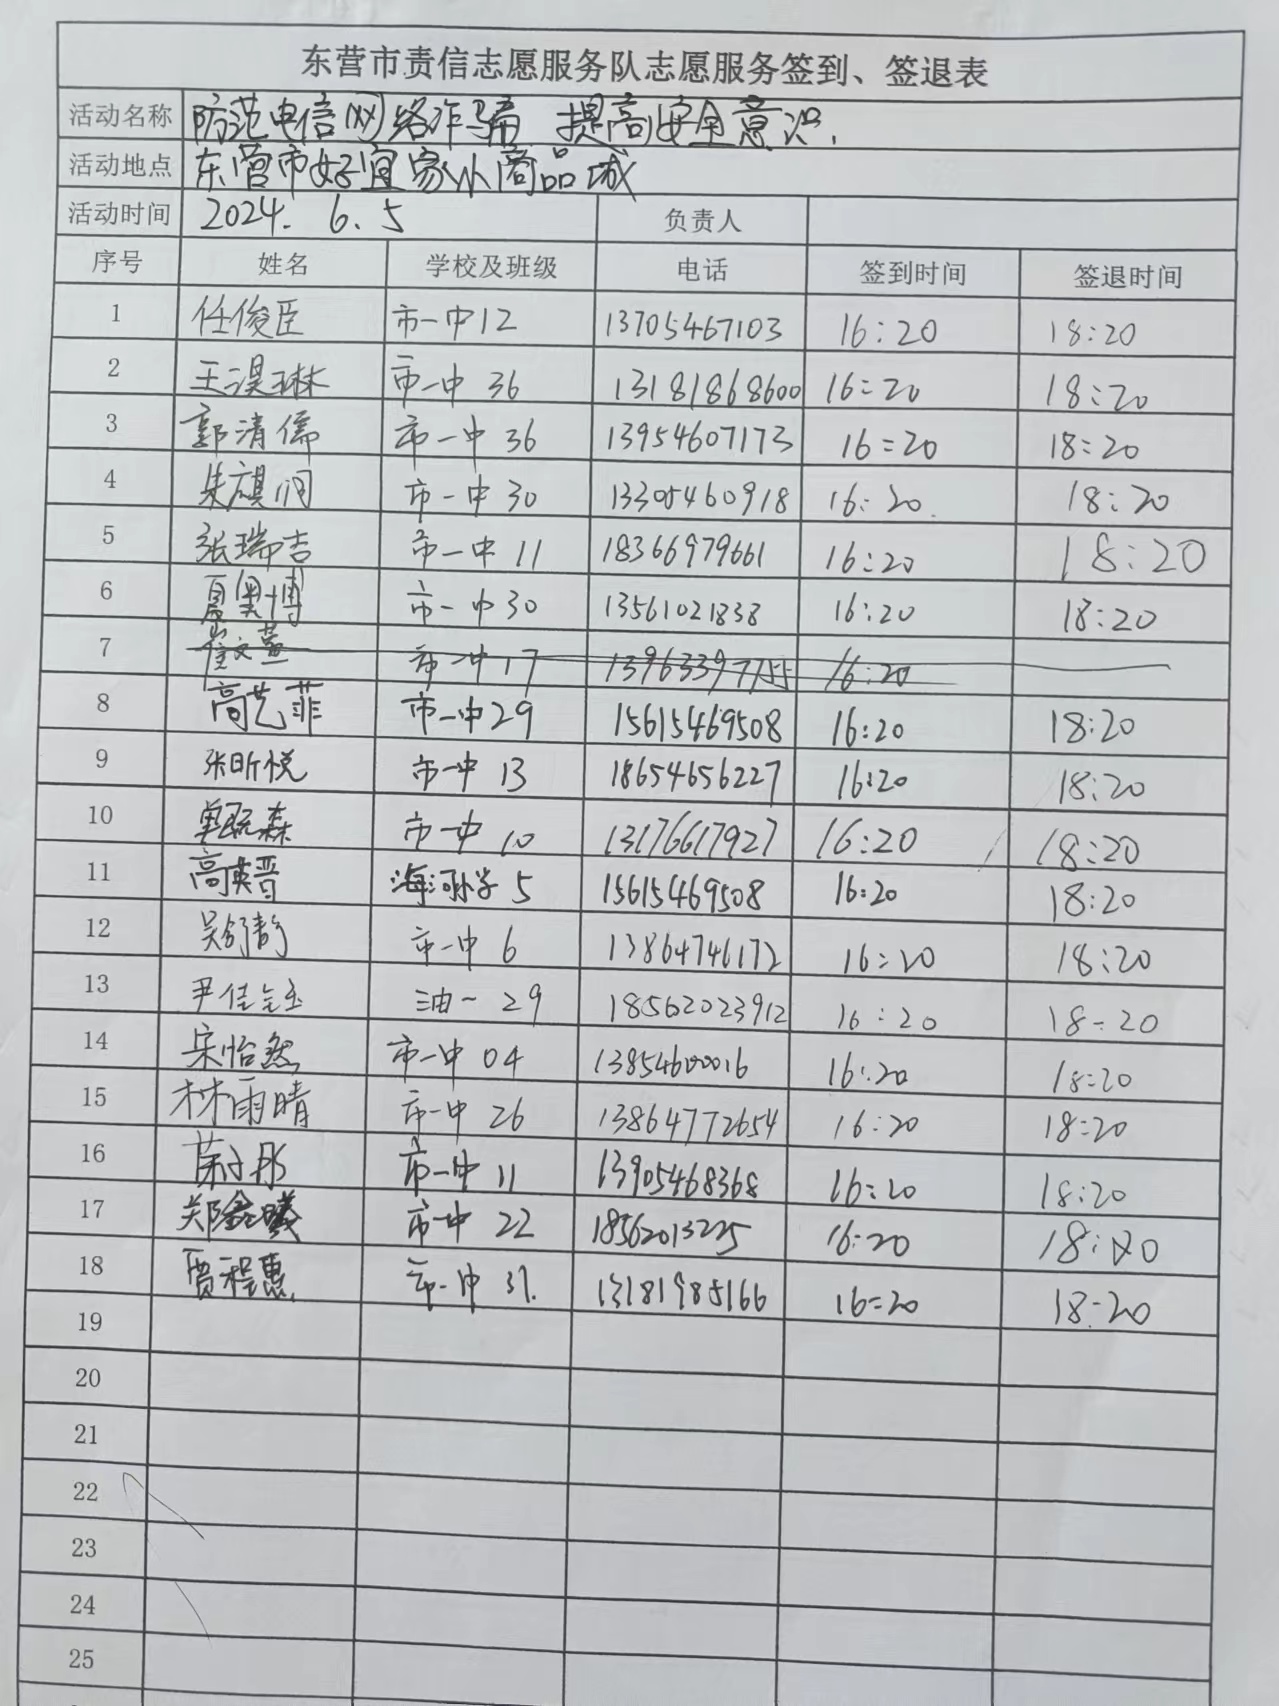 东营市责信志愿服务队志愿服务签到、签退表
活动名称 防范电信网络诈骗 提高安全意识.
活动地点 东营市好宜家小商品城
活动时间 2024. 6. 5 负责人
序号 姓名 学校及班级 电话 签到时间 签退时间
1 任俊臣 市一中12 13705467103 16:20 18:20
2 王淏琳 市一中 36 13181868600 16:20 18:20
3 郭清儒 市一中 36 13954607173 16:20 18:20
4 朱旗润 市一中 30 13305460918 16:20 18:20
5 张瑞吉 市一中 11 18366979661 16:20 18:20
6 夏奥博 市一中30 13561021838 16:20 18:20
7 崔文 市一中17 13963397755 16:20
8 高艺菲 市一中29 15615469508 16:20 18:20
9 张昕悦 市一中 13 18654656227 16:20 18:20
10 森 市一中 10 13176617927 16:20 18:20
11 高英晋 海河小学 5 15615469508 16:20 18:20
12 吴舒静 市一中 6 13864746172 16:20 18:20
13 尹佳 油一 29 18562023912 16:20 18:20
14 宋怡然 市一中 04 13854600016 16:20 18:20
15 林雨晴 市一中 26 13864772654 16:20 18:20
16 市一中 11 13905468368 16:20 18:20
17 郑鑫曦 市一中 22 18562013225 16:20 18:20
18 贾程惠 市一中 31. 13181985166 16:20 18:20
19
20
21
22
23
24
25